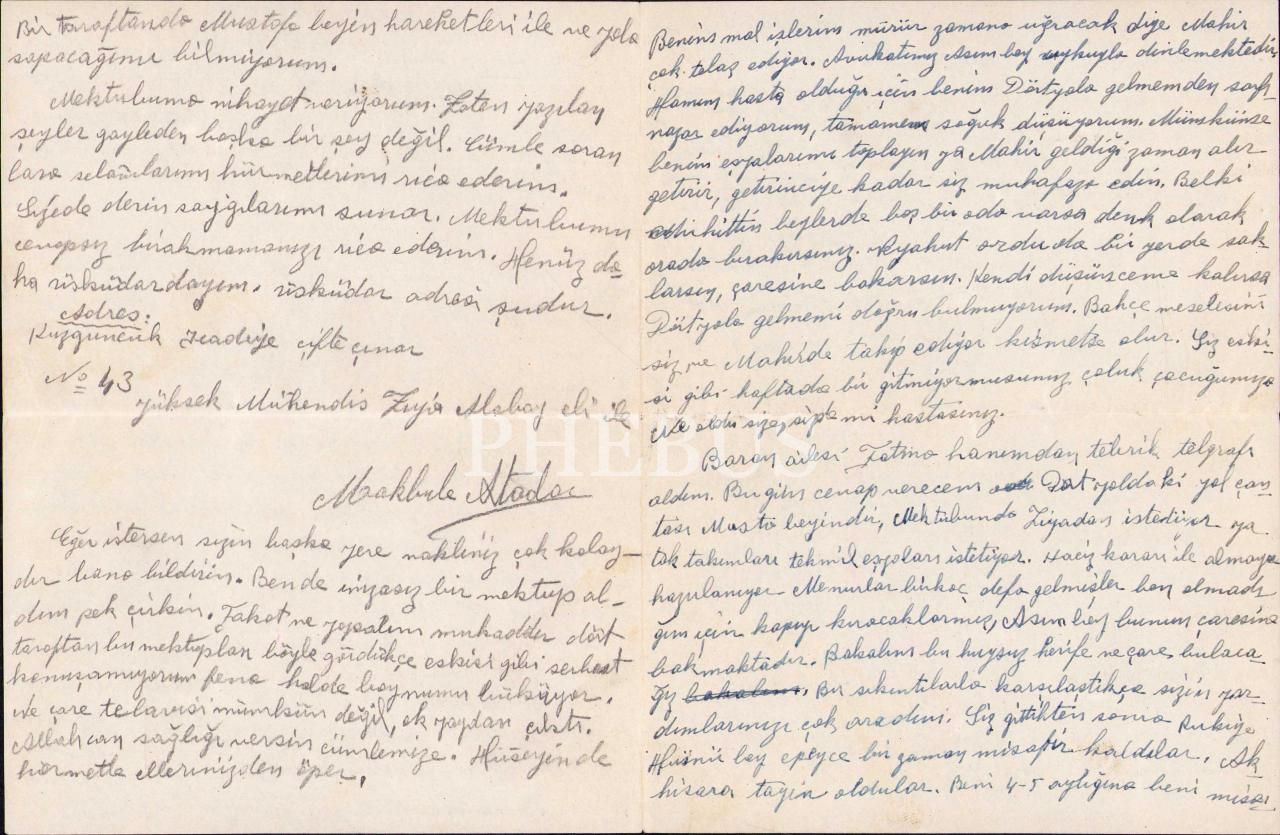 Bir taraftanda Mustafa beyin hareketleri ile ne yola
sapacağımı bilmiyorum.
Mektubuma nihayet veriyorum. Zaten yazılan
şeyler gayleden başka bir şey değil. Cümle soran
lara selamlarımı hürmetlerimi rica ederim.
Sizede derin saygılarımı sunar. Mektubumu
cevapsız bırakmamanızı rica ederim. Henüz da-
ha üsküdardayım. üsküdar adresi şudur.
Adres:
Kuzguncuk Icadiye çifte çınar
No 43
yüksek Mühendis Ziya Alabay eli ile
Makbule Atadan
Eğer istersen sizin başka yere nakliniz çok kolay-
dır bana bildirin. Bende imzasız bir mektup al-
dım pek çirkin. Fakat ne yapalım mukadder dört
taraftan bu mektupları böyle gördükçe eskisi gibi serbest
konuşamıyorum fena halde boynumu büküyor.
Ne çare telavisi mümkün değil, ok yaydan çıktı.
Allah can sağlığı versin cümlemize. Hüseyinde
hürmetle ellerinizden öper.
Benim mal işlerim mürür zamana uğracak diye Mahir
çok telaş ediyor. Avukatımız Asım bey uykuyla dinlemektedir.
Hanım hasta olduğu için benim Dörtyola gelmemden sarfı
nazar ediyorum, tamamen soğuk düşüyorum. Mümkünse
benim eşyalarımı toplayın ya Mahir geldiği zaman alır
getirir, getirinciye kadar siz muhafaza edin. Belki
Muhittin beylerde boş bir oda varsa denk olarak
orada bırakırsınız. Veyahut orduda bir yerde sak-
larsın, çaresine bakarsın. Kendi düşünceme kalırsa
Dörtyola gelmemi doğru bulmuyorum. Bahçe meselesini
siz ve Mahirde takip ediyor kısmetse olur. Siz eski-
si gibi haftada bir gitmiyormusunuz çoluk çocuğunuza
Ne oldu size, sizde mi hastasınız.
Baran ailesi Fatma hanımdan tebrik telgrafı
aldım. Bugün cevap verecem Dörtyoldaki yol çan-
tası Musta beyindir, Mektubunda Ziyadan istediyor ya
tak takımları tekmil eşyaları istetiyor. Haciz kararı ile almaya
hazırlanıyor. Memurlar birkaç defa gelmişler ben olmadı
ğım için kapıyı kıracaklarmış, Asım bey bunun çaresine
bakmaktadır. Bakalım bu huysuz herife ne çare bulaca-
ğız bakalım. Bu sıkıntılarla karşılaştıkça sizin yar-
dımlarınızı çok aradım. Siz gittikten sonra Rukiye
Hüsnü bey epeyce bir zaman misafir kaldılar. Ak-
hisara tayin oldular. Beni 4-5 aylığına beni misa
PHEBUS